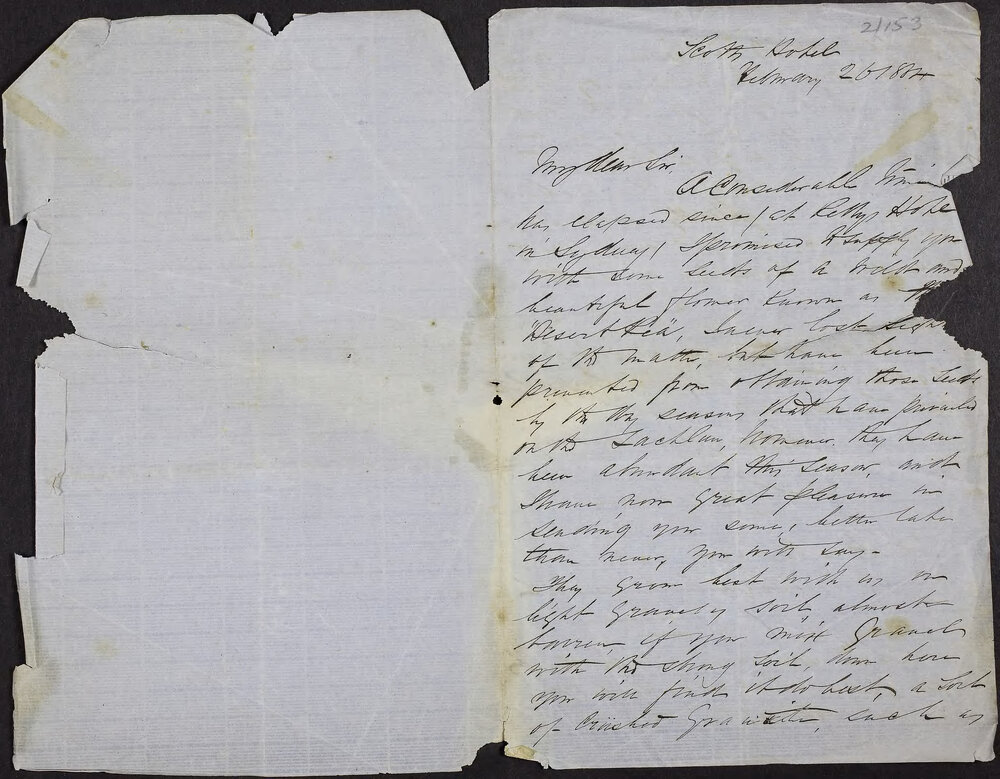 2/153
Scotts Hotel
February 26 1884
My dear Sir
A Considerable time
has elapsed since (at Pettys Hotel
in Sydney) I promised to supply you
with some seeds of a wild and
beautiful flower known as the
"Desert Pea", I never lost sight
of the matter, but have been
prevented from obtaining those seeds
by the dry seasons that have prevailed
on the Lachlan, however, they have
been abundant this season, and
I have now great pleasure in
sending you some, better late
than never, you will say -
They grow best with us on
light gravely soil almost
barren, if you mix gravel
with the strong soil, down here
you will find it do best, a sort
of crushed granite, such as